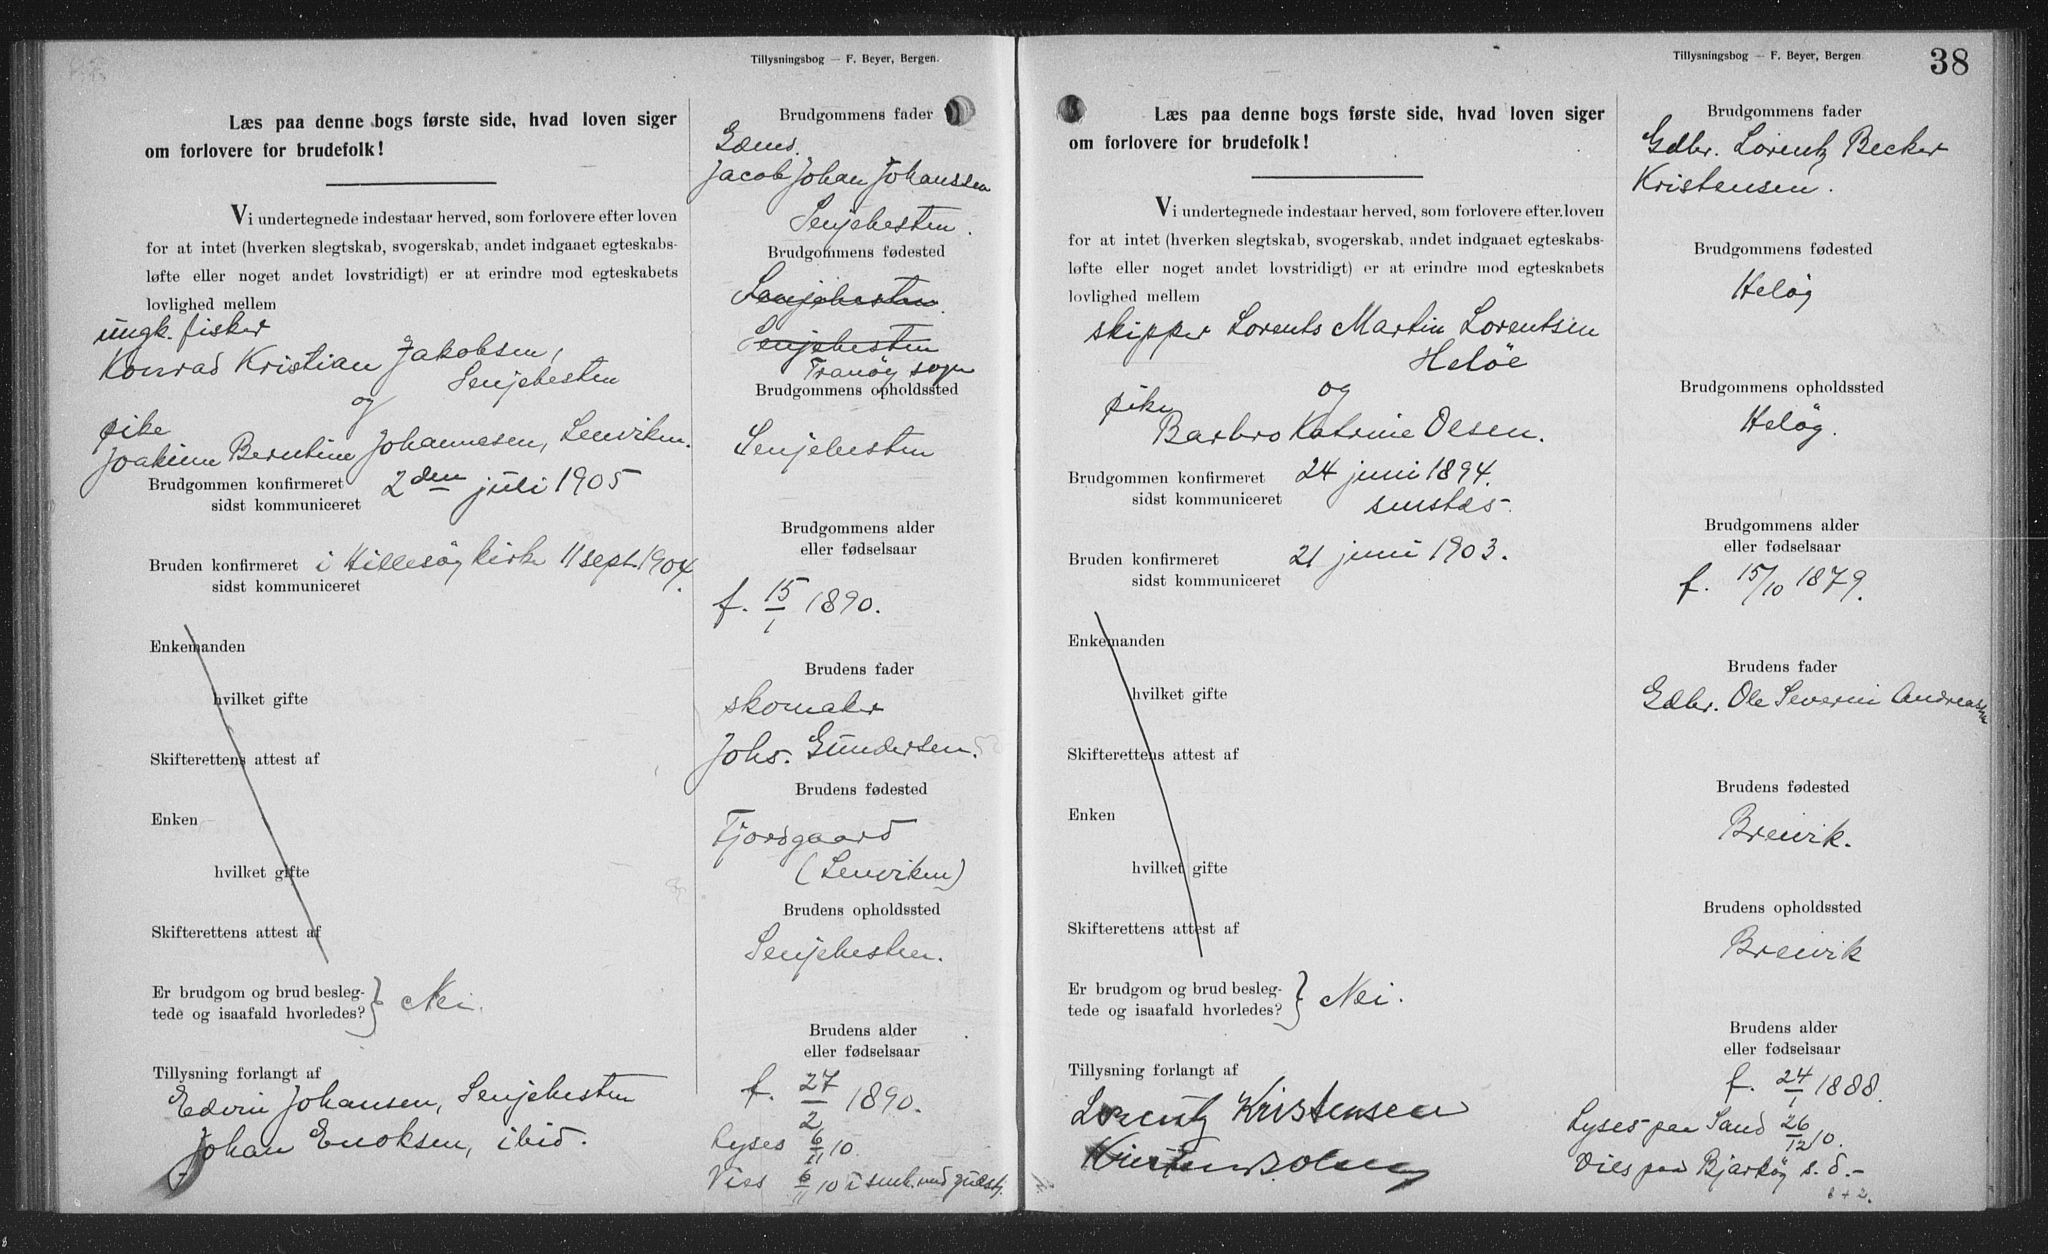 Tillysningsbog — F. Beyer, Bergen.
Læs paa denne bogs første side, hvad loven siger
om forlovere for brudefolk!
Vi undertegnede indestaar herved, som forlovere efter loven
for at intet (hverken slegtskab, svogerskab, andet indgaaet egteskabs-
løfte eller noget andet lovstridigt) er at erindre mod egteskabets
lovlighed mellem
ungk. fisker
Konrad Kristian Jakobsen,
Senjehesten
og
pike
Joakime Berntine Johannesen, Lenviken.
Brudgommen konfirmeret 2den juli 1905
sidst kommuniceret
Bruden konfirmeret i Hillesøy kirke 11 sept. 1904.
sidst kommuniceret
Enkemanden
hvilket gifte
Skifterettens attest af
Enken
hvilket gifte
Skifterettens attest af
Er brudgom og brud besleg-
tede og isaafald hvorledes? } Nei.
Tillysning forlangt af
Edvin Johansen, Senjehesten
Johan Enoksen, ibid.
Brudgommens fader
Gdms.
Jacob Johan Johanssen
Senjehesten.
Brudgommens fødested
Senjehesten.
Senjehesten
Tranøy sogn
Brudgommens opholdssted
Senjehesten
Brudgommens alder
eller fødselsaar
f. 15/1 1890.
Brudens fader
skomaker
Johs. Gundersen.
Brudens fødested
Fjordgaard
(Lenviken)
Brudens opholdssted
Senjehesten.
Brudens alder
eller fødselsaar
f. 27/2 1890.
Lyses 6/11 10
Vies 6/11 10 i smb. med gudstj.
Tillysningsbog — F. Beyer, Bergen.
38
Læs paa denne bogs første side, hvad loven siger
om forlovere for brudefolk!
Vi undertegnede indestaar herved, som forlovere efter loven
for at intet (hverken slegtskab, svogerskab, andet indgaaet egteskabs-
løfte eller noget andet lovstridigt) er at erindre mod egteskabets
lovlighed mellem
skipper Lorents Martin Lorentsen
Heløe
og
pike
Barbro Katrine Olsen.
Brudgommen konfirmeret 24 juni 1894.
sidst kommuniceret
Bruden konfirmeret 21 juni 1903.
sidst kommuniceret
Enkemanden
hvilket gifte
Skifterettens attest af
Enken
hvilket gifte
Skifterettens attest af
Er brudgom og brud besleg-
tede og isaafald hvorledes? } Nei.
Tillysning forlangt af
Lorentz Kristensen
Brudgommens fader
Gdbr. Lorentz Becker
Kristensen.
Brudgommens fødested
Heløy
Brudgommens opholdssted
Heløy.
Brudgommens alder
eller fødselsaar
f. 15/10 1879.
Brudens fader
Gdbr. Ole Severin Andreassen
Brudens fødested
Breivik.
Brudens opholdssted
Breivik
Brudens alder
eller fødselsaar
f. 24/1 1888.
Lyses paa Sand 26/12 10.
Vies paa Bjarkøy s. d.-